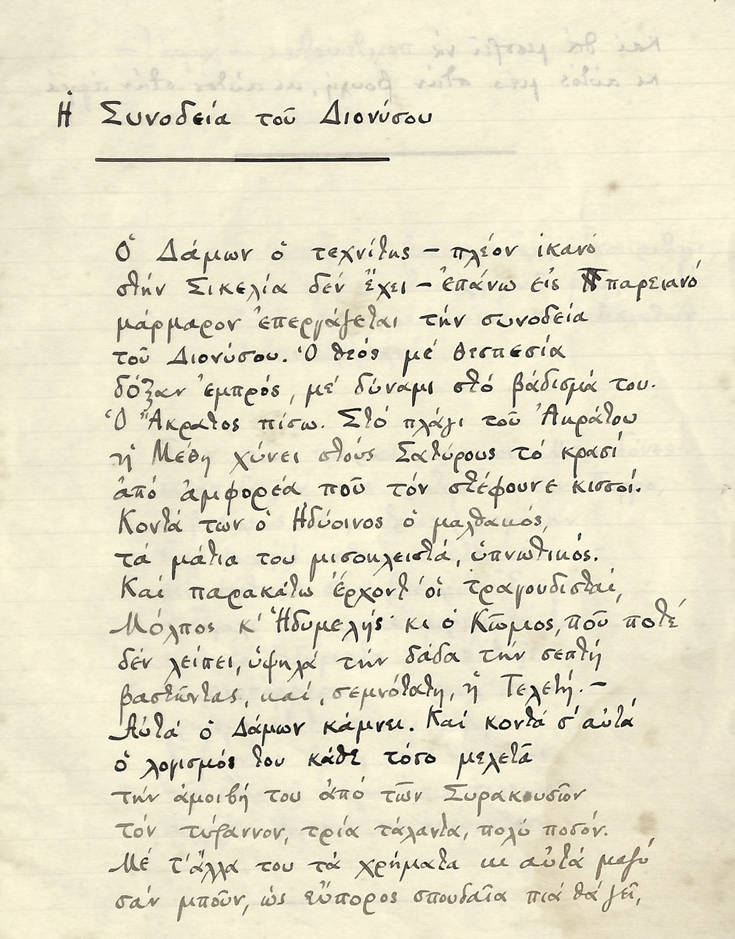 Ἡ Συνοδεία τοῦ Διονύσου
Ὁ Δάμων ὁ τεχνίτης — πλέον ἱκανό
στήν Σικελία δέν ἔχει — ἐπάνω εἰς παρειανό
μάρμαρον ἐπεργάζεται τήν συνοδεία
τοῦ Διονύσου. Ὁ θεός μέ θεσπεσία
δόξαν ἐμπρός, μέ δύναμι στό βάδισμά του.
Ὁ Ἄκρατος πίσω. Στό πλάγι τοῦ Ἀκράτου
ἡ Μέθη χύνει στούς Σατύρους τό κρασί
ἀπό ἀμφορέα πού τόν στέφουνε κισσοί.
Κοντά των ὁ Ἡδύοινος ὁ μαλθακός,
τά μάτια του μισοκλειστά, ὑπνωτικός.
Καί παρακάτω ἔρχοντ' οἱ τραγουδισταί,
Μόλπος κ' Ἡδυμελής κι ὁ Κῶμος, πού ποτέ
δέν λείπει, ὑψηλά τήν δάδα τήν σεπτή
βαστῶντας, καί, σεμνότατη, ἡ Τελετή. —
Αὐτά ὁ Δάμων κάμνει. Καί κοντά σ' αὐτά
ὁ λογισμός του κάθε τόσο μελετᾶ
τήν ἀμοιβή του ἀπό τῶν Συρακουσῶν
τόν τύραννον, τρία τάλαντα, πολύ ποσόν.
Μέ τ' ἄλλα του τά χρήματα κι αὐτά μαζύ
σάν μποῦν, ὡς εὔπορος σπουδαῖα πιά θά ζεῖ,